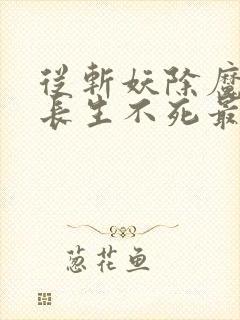 從斬妖除魔
長生不死最
葱花鱼